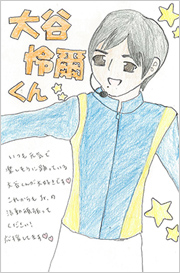 大谷
怜爾
くん
いつも元気で
楽しそうに踊っている
大谷くんが大好きです♡
これからもJr.の
活動頑張って
ください!
応援してます♡